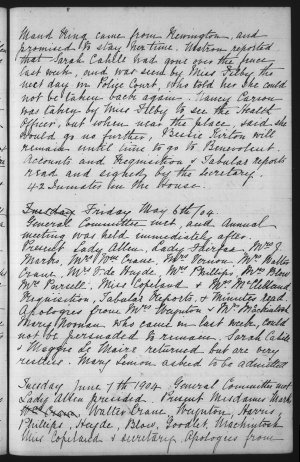 Maud King came from Newington, and
promised to stay her time. Matron reported
that Sarah Cahill had gone over the fence
last week, and was seen by Miss Selby the
next day in Police Court, who told her she could
not be taken back again. Nancy Carson
was taken by Miss Selby to see the Health
Officer, but when near the place, said she
would go no further, Bessie Kirton will
remain until time to go to Benevolent
Accounts and Requisition & Tabular reports
read and signed by the Secretary.
42 Inmates in the House.
Tuesday Friday May 6th/04.
General Committee met, and Annual
meeting was held immediately after.
Present Lady Allen, Lady Fairfax, Mrs J.
Marks, Mrs Wm Crane, Mrs Vernon Mrs Walter
Crane, Mrs F. de Heyde, Mrs Phillips, Mrs Blow
Mrs Purcell. Miss Copeland & Mrs McClelland
Requisition, Tabular Reports, & Minutes read.
Apologies from Mrs Weynton & Mrs Mackintosh
Mary Noonan who came in last week, could
not be persuaded to remain. Sarah Cahill
& Maggie Le Maire returned but are very
restless. Mary Simon asked to be admitted
Tuesday June 7th 1904. General Committee met
Lady Allen presided. Present Mesdames Mark
Wm Crane, Walter Crane, Weynton, Harris,
Phillips, Heyde, Blow, Goodlet, Mackintosh
Miss Copeland & Secretary. Apologies from